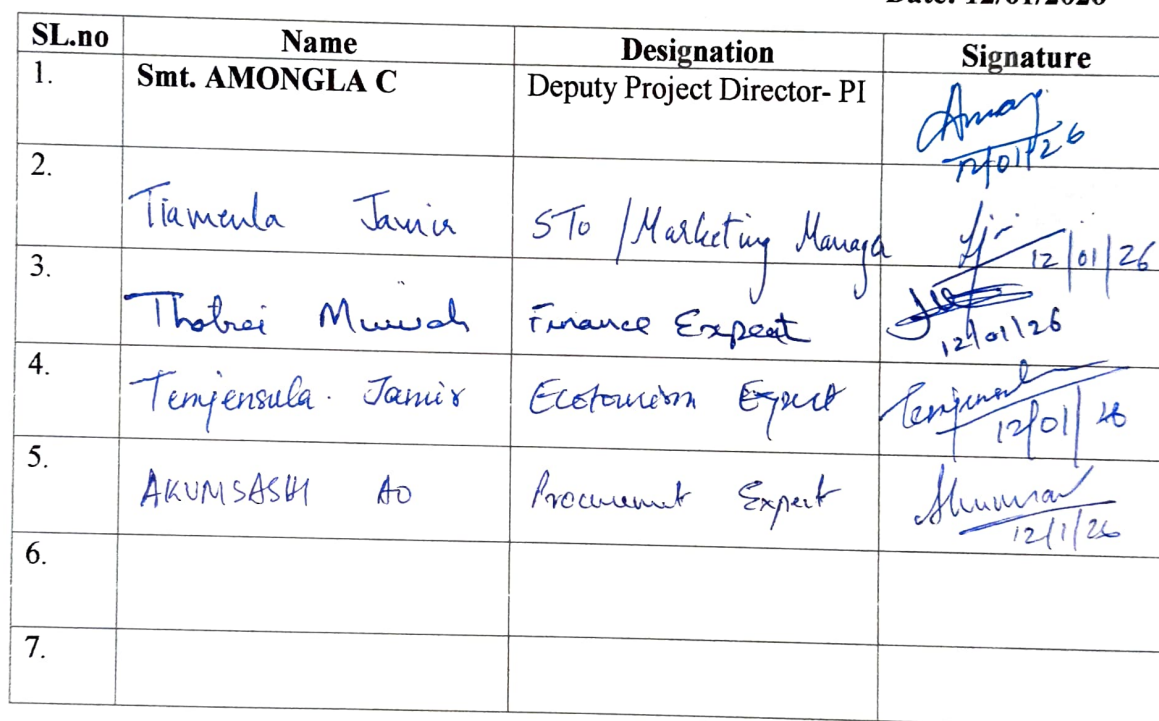 Date: 12/01/2026
SL.no Name Designation Signature
1. Smt. AMONGLA C Deputy Project Director- PI
12/01/26
2. Tiamenla Jamir STO /Marketing Manager 12/01/26
3. Thobei Finance Expert 12/01/26
4. Temjensula. Jamir Ecotourism Expert 12/01/26
5. AKUMSASHI AO Procurement Expert
12/1/26
6.
7.